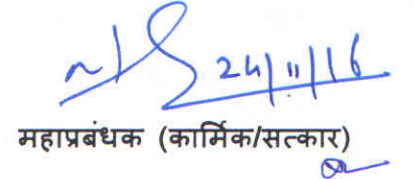 24/11/16
महाप्रबंधक (कार्मिक/सत्कार)